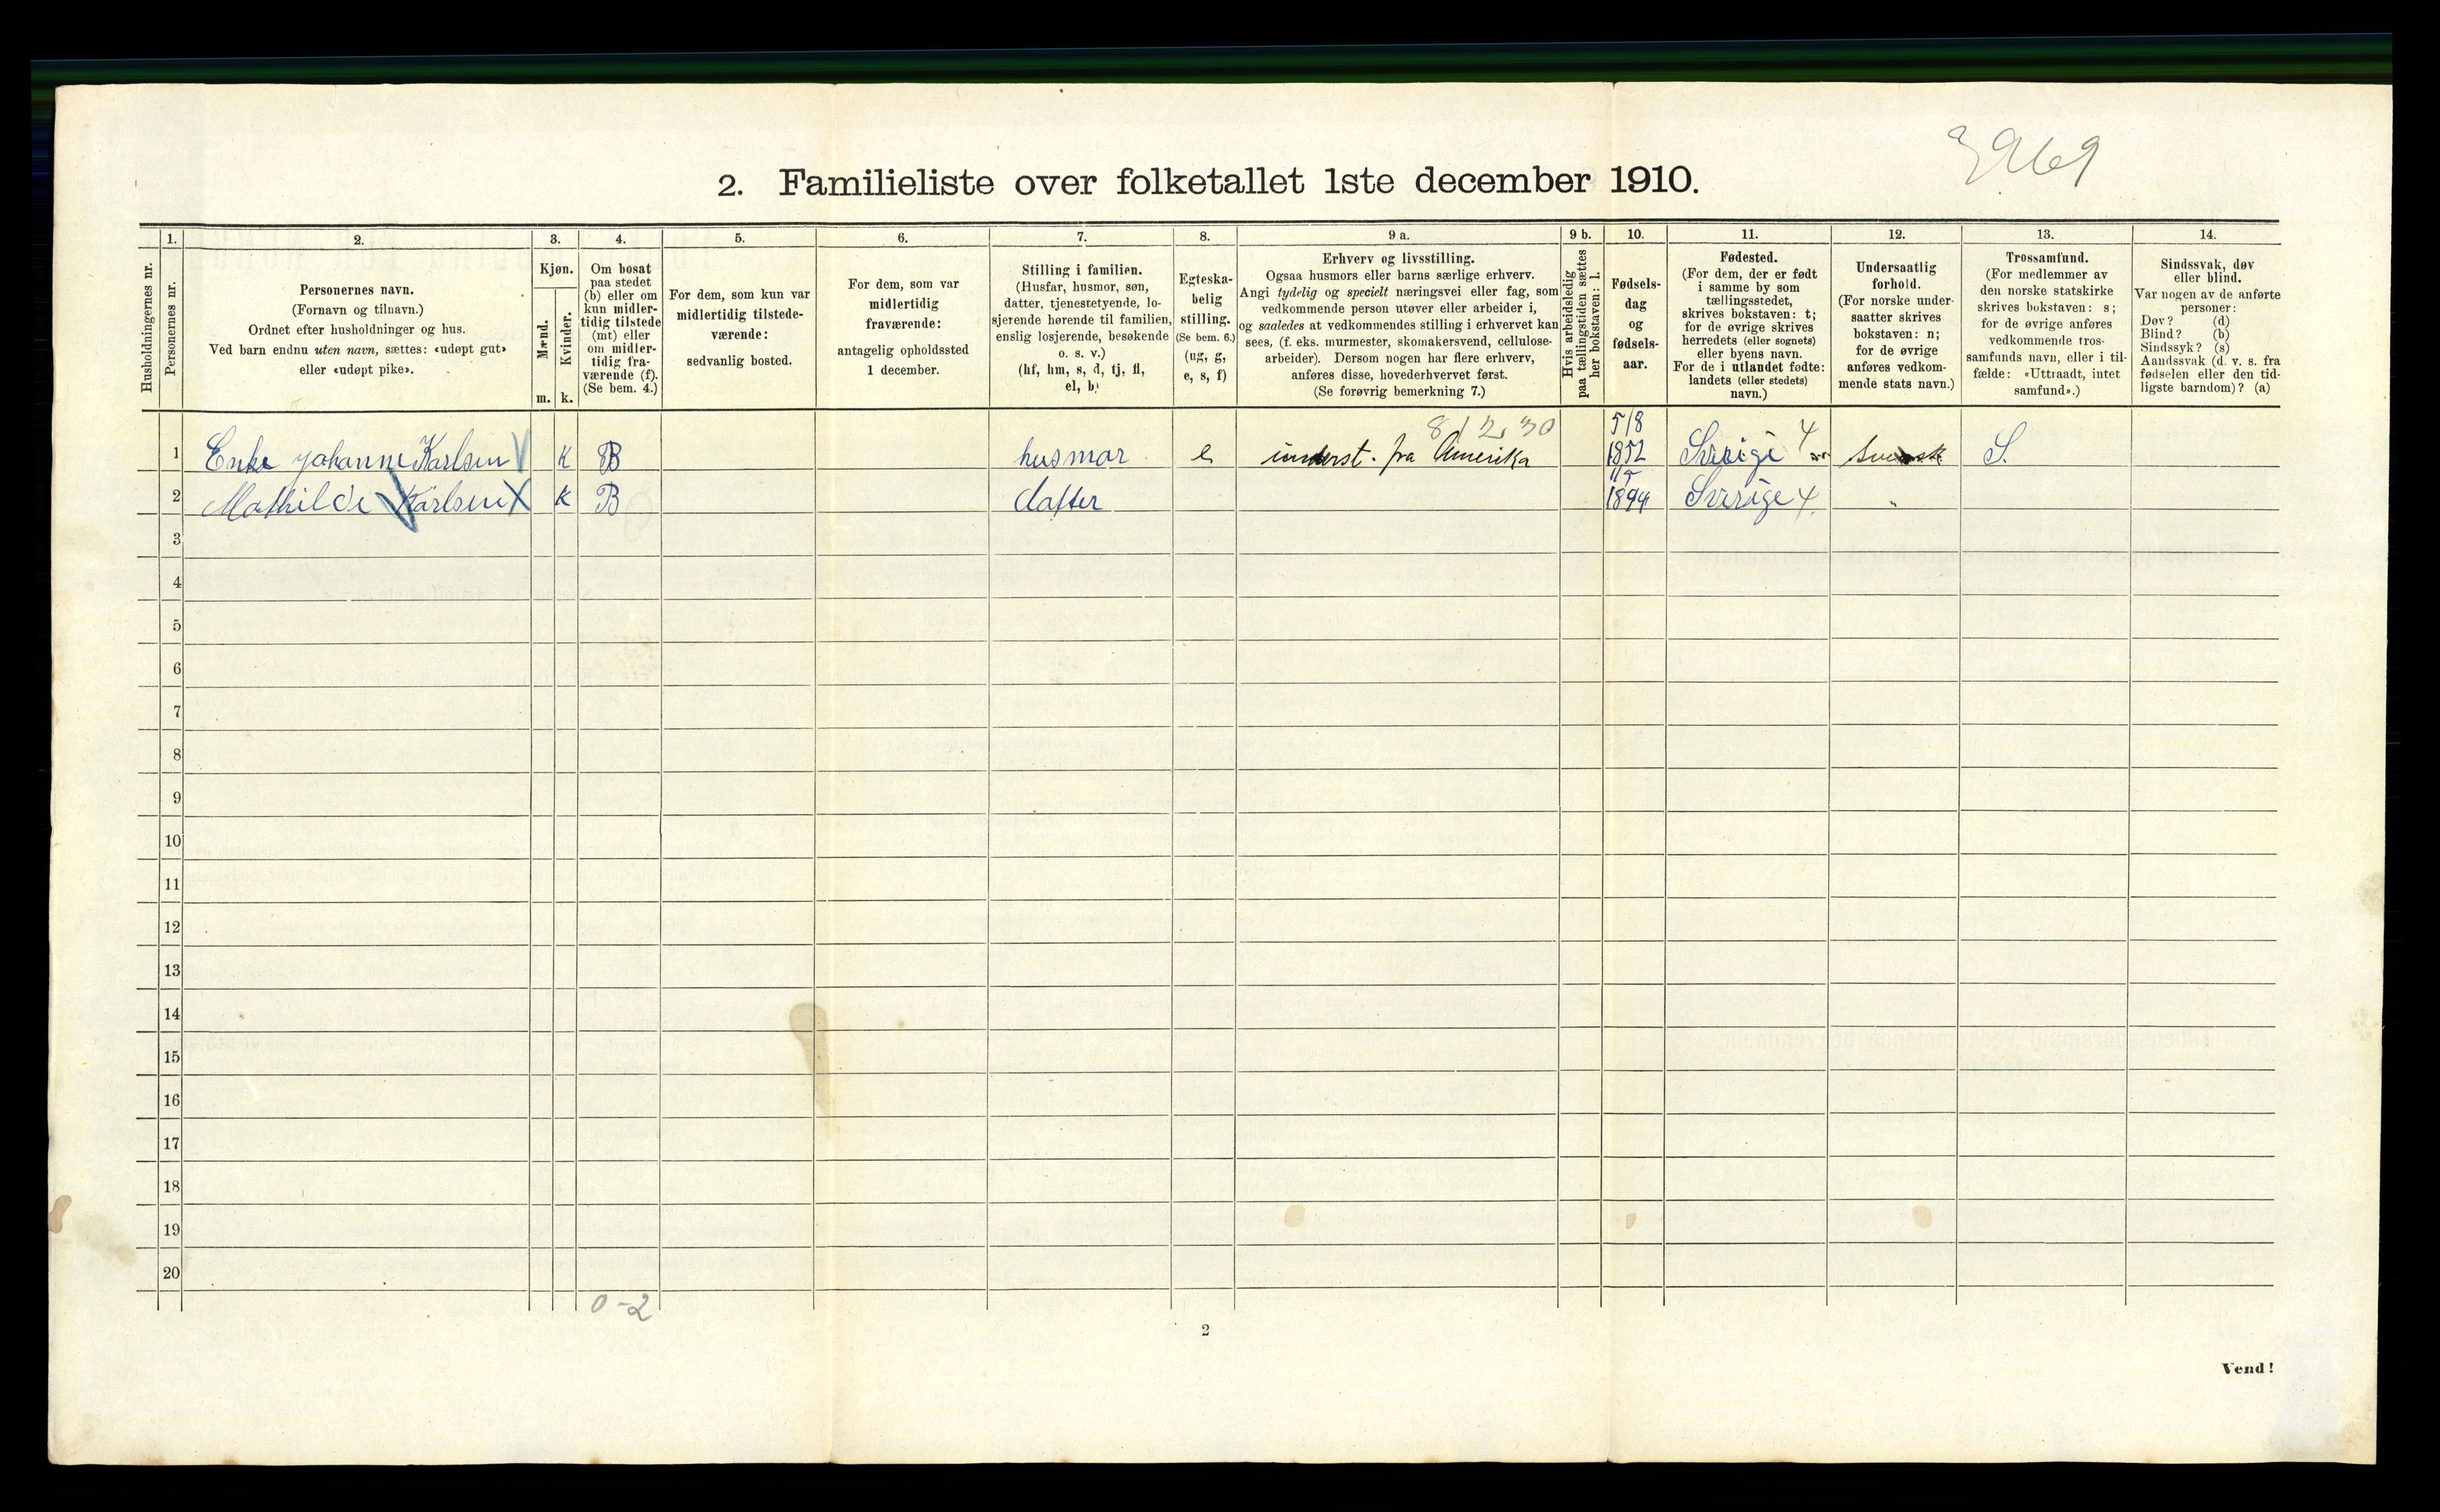 3969
2. Familieliste over folketallet 1ste december 1910.
Husholdningernes nr.
1.
Personernes nr.
2.
Personernes navn.
(Fornavn og tilnavn.)
Ordnet efter husholdninger og hus.
Ved barn endnu uten navn, sættes: «udøpt gut»
eller «udøpt pike».
3.
Kjøn.
Mænd.
Kvinder.
m. k.
4.
Om bosat
paa stedet
(b) eller om
kun midler-
tidig tilstede
(mt) eller
om midler-
tidig fra-
værende (f).
(Se bem. 4.)
5.
For dem, som kun var
midlertidig tilstede-
værende:
sedvanlig bosted.
6.
For dem, som var
midlertidig
fraværende:
antagelig opholdssted
1 december.
7.
Stilling i familien.
(Husfar, husmor, søn,
datter, tjenestetyende, lo-
sjerende hørende til familien,
enslig losjerende, besøkende
o. s. v.)
(hf, hm, s, d, tj, fl,
el, b)
8.
Egteska-
belig
stilling.
(Se bem. 6.)
(ug, g,
e, s, f)
9 a.
Erhverv og livsstilling.
Ogsaa husmors eller barns særlige erhverv.
Angi tydelig og specielt næringsvei eller fag, som
vedkommende person utøver eller arbeider i,
og saaledes at vedkommendes stilling i erhvervet kan
sees, (f. eks. murmester, skomakersvend, cellulose-
arbeider). Dersom nogen har flere erhverv,
anføres disse, hovederhvervet først.
(Se forøvrig bemerkning 7.)
9 b.
Hvis arbeidsledig
paa tællingstiden sættes
her bokstaven: l.
10.
Fødsels-
dag
og
fødsels-
aar.
11.
Fødested.
(For dem, der er født
i samme by som
tællingsstedet,
skrives bokstaven: t;
for de øvrige skrives
herredets (eller sognets)
eller byens navn.
For de i utlandet fødte:
landets (eller stedets)
navn.)
12.
Undersaatlig
forhold.
(For norske under-
saatter skrives
bokstaven: n;
for de øvrige
anføres vedkom-
mende stats navn.)
13.
Trossamfund.
(For medlemmer av
den norske statskirke
skrives bokstaven: s;
for de øvrige anføres
vedkommende tros-
samfunds navn, eller i til-
fælde: «Uttraadt, intet
samfund».)
14.
Sindssvak, døv
eller blind.
Var nogen av de anførte
personer:
Døv? (d)
Blind? (b)
Sindssyk? (s)
Aandssvak (d. v. s. fra
fødselen eller den tid-
ligste barndom)? (a)
8 1 2 30 5/8
1 Enke Johanne Karlsen K B husmor e underst. fra Amerika 1852 Sverige Svensk S.
11/5
2 Mathilde Karlsen K B datter 1894 Sverige "
3
4
5
6
7
8
9
10
11
12
13
14
15
16
17
18
19
20
0-2
2
Vend!